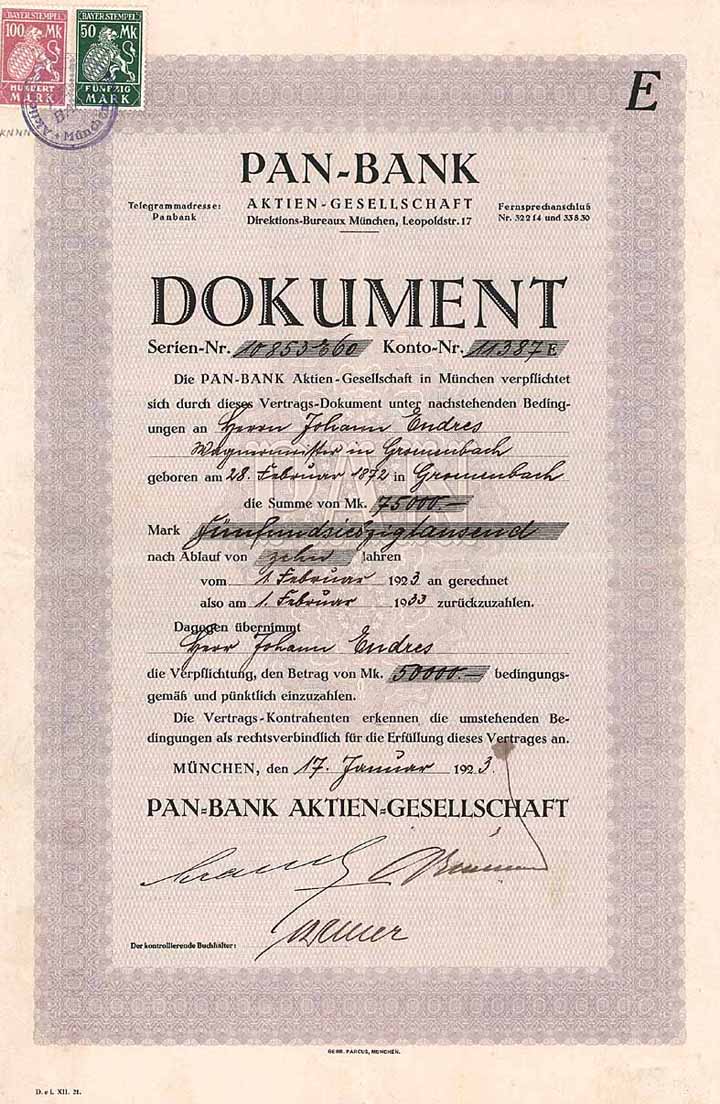 BAYER.STEMPEL BAYER.STEMPEL
100 Mk 50 Mk
HUNDERT MARK FÜNFZIG MARK
München
E
PAN-BANK
Telegrammadresse: Panbank
AKTIEN-GESELLSCHAFT
Direktions-Bureaux München, Leopoldstr. 17
Fernsprechanschluß
Nr. 32214 und 33830
DOKUMENT
Serien-Nr. 10853360 Konto-Nr. 11387 E
Die PAN-BANK Aktien-Gesellschaft in München verpflichtet
sich durch dieses Vertrags-Dokument unter nachstehenden Beding-
ungen an Herrn Johann Endres
Wagnermeister in Gromenbach
geboren am 28. Februar 1872 in Gromenbach
die Summe von Mk. 75000.-
Mark Fünfundsiebzigtausend
nach Ablauf von zehn Jahren
vom 1. Februar 1923 an gerechnet
also am 1. Februar 1933 zurückzuzahlen.
Dagegen übernimmt
Herr Johann Endres
die Verpflichtung, den Betrag von Mk. 50000.- bedingungs-
gemäß und pünktlich einzuzahlen.
Die Vertrags-Kontrahenten erkennen die umstehenden Be-
dingungen als rechtsverbindlich für die Erfüllung dieses Vertrages an.
MÜNCHEN, den 17. Januar 1923.
PAN-BANK AKTIEN-GESELLSCHAFT
Der kontrollierende Buchhalter:
GEBR. PARCUS, MÜNCHEN.
D. e l. XII. 21.